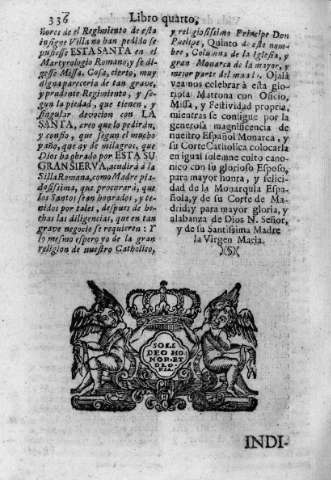 336 Libro quarto,
ñores de el Regimiento de esta
insigne Villa no han pedido se
pusiesse ESTA SANTA en el
Martyrologio Romano, y se di-
gesse Missa. Cosa, cierto, muy
digna parecería de tan grave,
y prudente Regimiento, y se-
gun la piedad, que tienen, y
singular devocion con LA
SANTA, creo que lo pedirán,
y confio, que segun el mucho
paño, que ay de milagros, que
Dios ha obrado por ESTA SU
GRAN SIERVA, acudirá à la
Silla Romana, como Madre pia-
dosissima, que procurará, que
los Santos sean honrados, y te-
nidos por tales, despues de he-
chas las diligencias, que en tan
grave negocio se requieren: Y
lo mesmo espero yo de la gran
religion de nuestro Catholico,
y religiosissimo Principe Don
Phelipe, Quinto de este nom-
bre, Coluna de la Iglesia, y
gran Monarca de la mayor, y
mejor parte del mundo. Ojalà
vea nos celebrar à esta glo-
riosa Matrona con Oficio,
Missa, y Festividad propria,
mientras se consigue por la
generosa magnificencia de
nuestro Español Monarca, y
su Corte Catholica colocarla
en igual solemne culto cano-
nico con su glorioso Esposo,
para mayor honra, y felicidad
de la Monarquia Espa-
ñola, y de su Corte de Ma-
drid, y para mayor gloria, y
alabanza de Dios N. Señor,
y de su Santissima Madre
la Virgen Maria.
)(S)(
SOLI
DEO HO-
NOR ET
GLO-
RIA.
INDI-